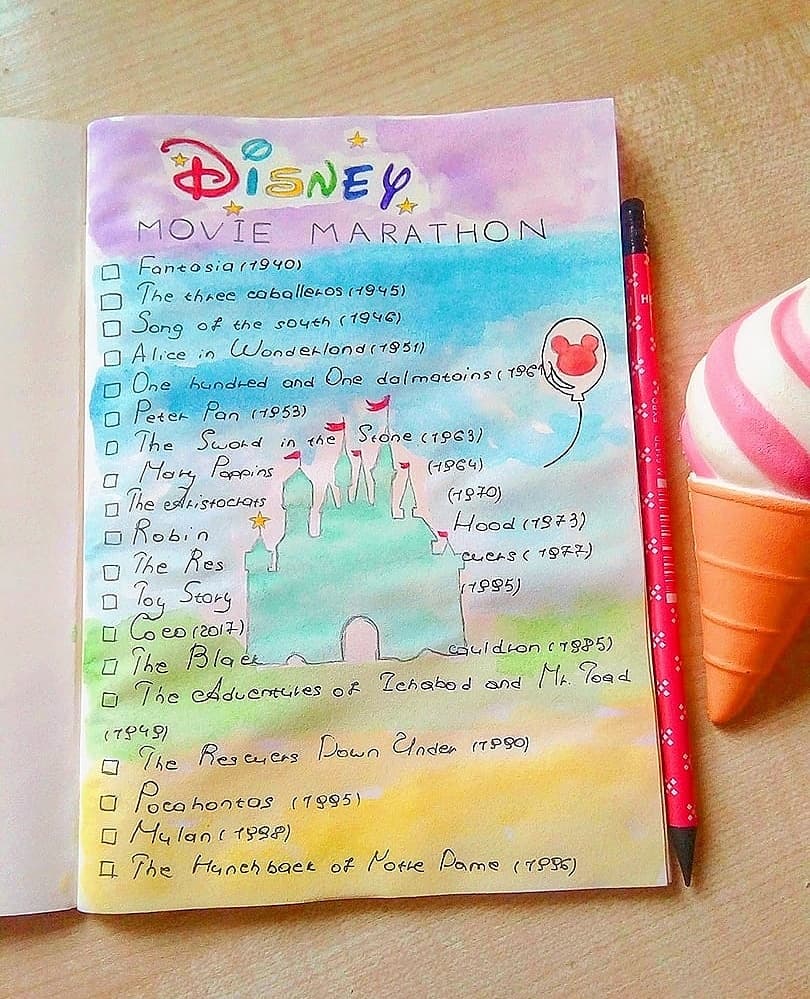 DISNEY
MOVIE MARATHON
Fantasia (1940)
The three caballeros (1945)
Song of the south (1946)
Alice in Wonderland (1951)
One hundred and One dalmatoins (1961
Peter Pan (1953)
The Sword in the Stone (1963)
Mary Poppins (1964)
The Aristocrats (1970)
Robin Hood (1973)
The Rescuers (1977)
Toy Story (1995)
Coco (2017)
The Black cauldron (1985)
The Adventures of Ichabod and Mr. Toad
(1949)
The Rescuers Down Under (1990)
Pocahontas (1995)
Mulan (1998)
The Hunchback of Notre Dame (1996)